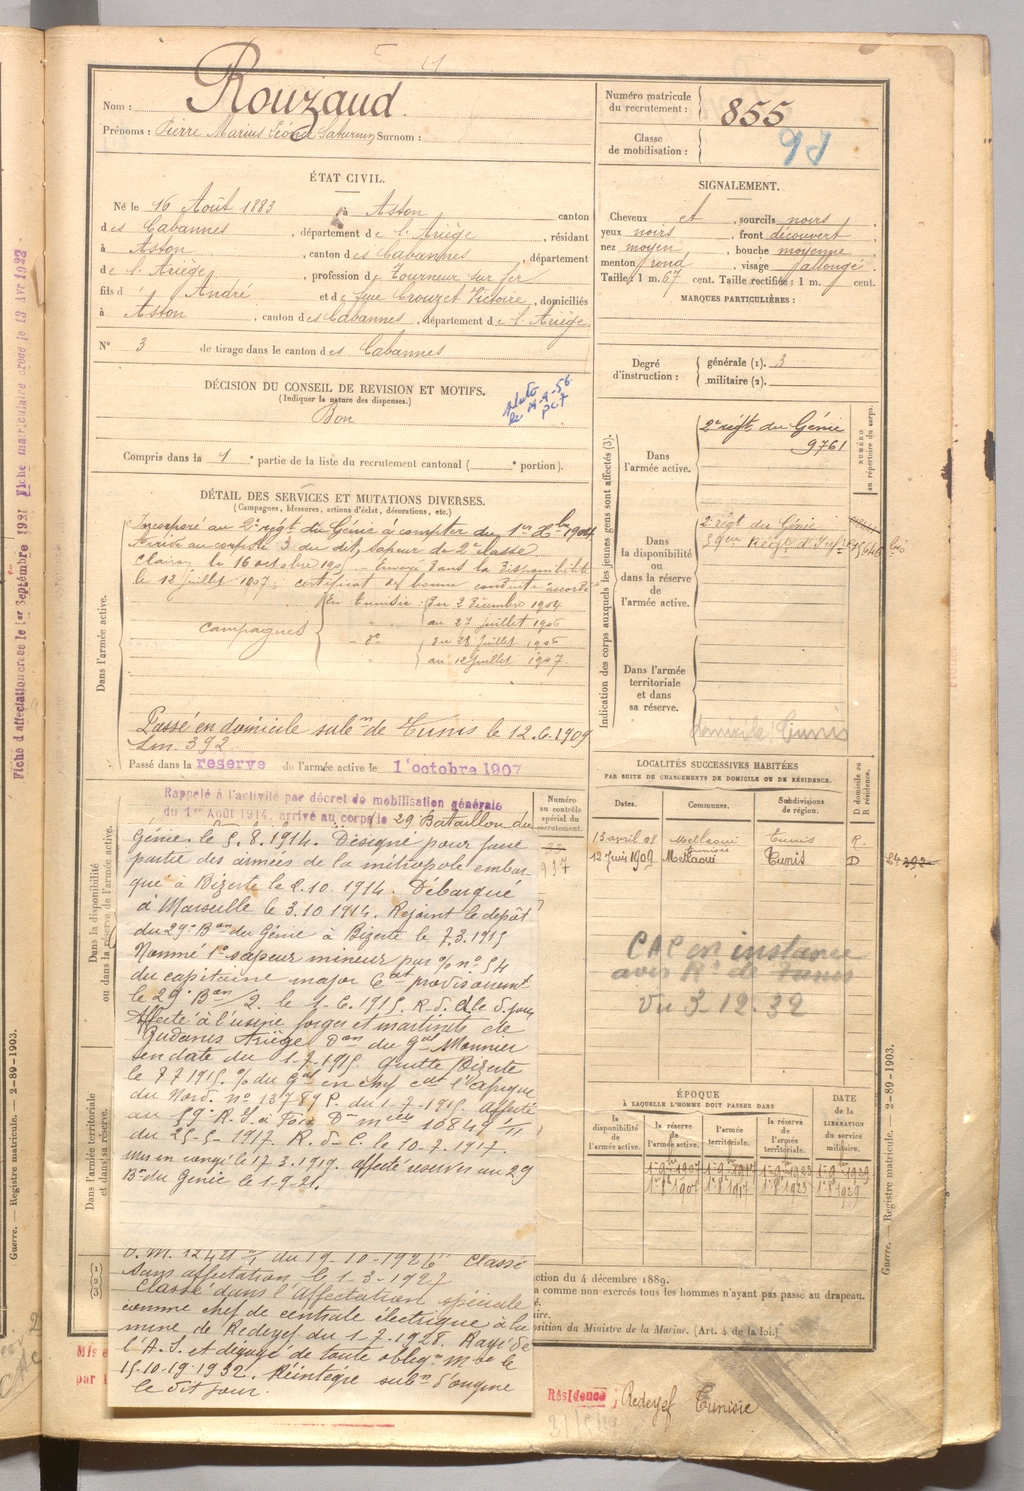 Nom : Rouzaud.
Prénoms : Pierre Marius Léon Saturnin Surnom :
Numéro matricule du recrutement : 855
Classe de mobilisation :
ÉTAT CIVIL.
Né le 16 Août 1883, à Aston canton
des Cabannes, département de l'Ariège, résidant
à Aston, canton des Cabannes, département
de l'Ariège, profession de Tourneur sur fer
fils d'André et de feue Crouzet Victoire, domiciliés
à Aston, canton des Cabannes, département de l'Ariège.
N° 3 de tirage dans le canton des Cabannes
SIGNALEMENT.
Cheveux et, sourcils noirs,
yeux noirs, front découvert,
nez moyen, bouche moyenne
menton rond, visage allongé.
Taille : 1 m. 67 cent. Taille rectifiée : 1 m. cent.
MARQUES PARTICULIÈRES :
Degré d'instruction : générale (1). 3
militaire (2).
DÉCISION DU CONSEIL DE REVISION ET MOTIFS.
(Indiquer la nature des dispenses.)
Bon
Compris dans la 1e partie de la liste du recrutement cantonal ( e portion).
DÉTAIL DES SERVICES ET MUTATIONS DIVERSES.
(Campagnes, blessures, actions d'éclat, décorations, etc.)
Incorporé au 2e régt du Génie à compter du 1er Xbre 1904
au corps le 3 du dit, Sapeur de 2e classe
Clairon le 16 octobre 1905 Envoyé dans la disponibilité
le 12 juillet 1907, certificat de bonne conduite accordé
Campagnes
En Tunisie du 2 Décembre 1904
au 27 juillet 1906
- do du 28 juillet 1906
au 12 juillet 1907.
Passé en domicile subon de Tunis le 12.6.1909
392
Passé dans la réserve de l'armée active le 1er octobre 1907
Dans l'armée active.
Indication des corps auxquels les jeunes gens sont affectés (3).
NUMÉRO au répertoire du corps.
Dans l'armée active.
2e régt du Génie
9761
Dans la disponibilité ou dans la réserve de l'armée active.
2e régt du Génie
59eme Régt d'Infie
Dans l'armée territoriale et dans sa réserve.
domicile Tunis
LOCALITÉS SUCCESSIVES HABITÉES
PAR SUITE DE CHANGEMENTS DE DOMICILE OU DE RÉSIDENCE.
Numéro au contrôle spécial du recrutement.
Dates. Communes. Subdivisions de région. D domicile ou R résidence.
13 avril 08 Metlaoui Tunis R.
Tunisie
12 Juin 1909 Metlaoui Tunis D
Rappelé à l'activité par décret de mobilisation générale
du 1er Août 1914, arrivé au corps le 29 Bataillon du
Génie le 5.8.1914. Désigné pour faire
partie des armées de la métropole embar
qué à Bizerte le 2.10.1914. Débarqué
à Marseille le 3.10.1914. Rejoint le dépôt
du 29e Bon du Génie à Bizerte le 7.3.1915
Nommé 1er sapeur mineur par % no 54
du capitaine major Ct provisoirement
le 29e Bon
Affecté à l'usine forges et martinets de
Gudanes Ariège Don du Gal Monnier
en date du 1-7-1915. Quitte Bizerte
le 8 7 1915. % du Gal en chef Ct l'Afrique
du Nord. no 13789 P. du 1-7-1915. Affecté
au 59e R.I. à Foix
du 25-5-1917. R. d. C. le 10.7.1917.
Mis en congé le 17.3.1919. affecté réserve au 29
Bon du Génie le 1-9-21.
du 19-10-1926 Classé
sans affectation le 1-3-1927
Classé dans l'affectation spéciale
comme chef de centrale électrique à la
mine de Redeyef du 1-7-1928. Rayé de
l'A.S. et dégagé de toute obligon mre le
15-10-19-1932. Réintègre subon d'origine
le dit jour.
Dans la disponibilité ou dans la réserve de l'armée active.
Dans l'armée territoriale et dans sa réserve.
CAC en instance
avis Rt de Tunis
Vu 3.12.32
ÉPOQUE
À LAQUELLE L'HOMME DOIT PASSER DANS
DATE de la LIBÉRATION du service militaire.
la disponibilité de l'armée active. la réserve de l'armée active. l'armée territoriale. la réserve de l'armée territoriale.
1er 8bre 1907 1er 8bre 1917 1er 8bre 1923 1er 8bre 1929
ction du 4 décembre 1889.
a comme non exercés tous les hommes n'ayant pas passé au drapeau.
osition du Ministre de la Marine. (Art. 4 de la loi.)
Résidence : Redeyef Tunisie
Fiche d'affectation créée le 1er Septembre 1921
Fiche matriculaire créée le 13 Avr 1922
Guerre. — Registre matricule. — 2-89-1903.
Guerre. — Registre matricule. — 2-89-1903.